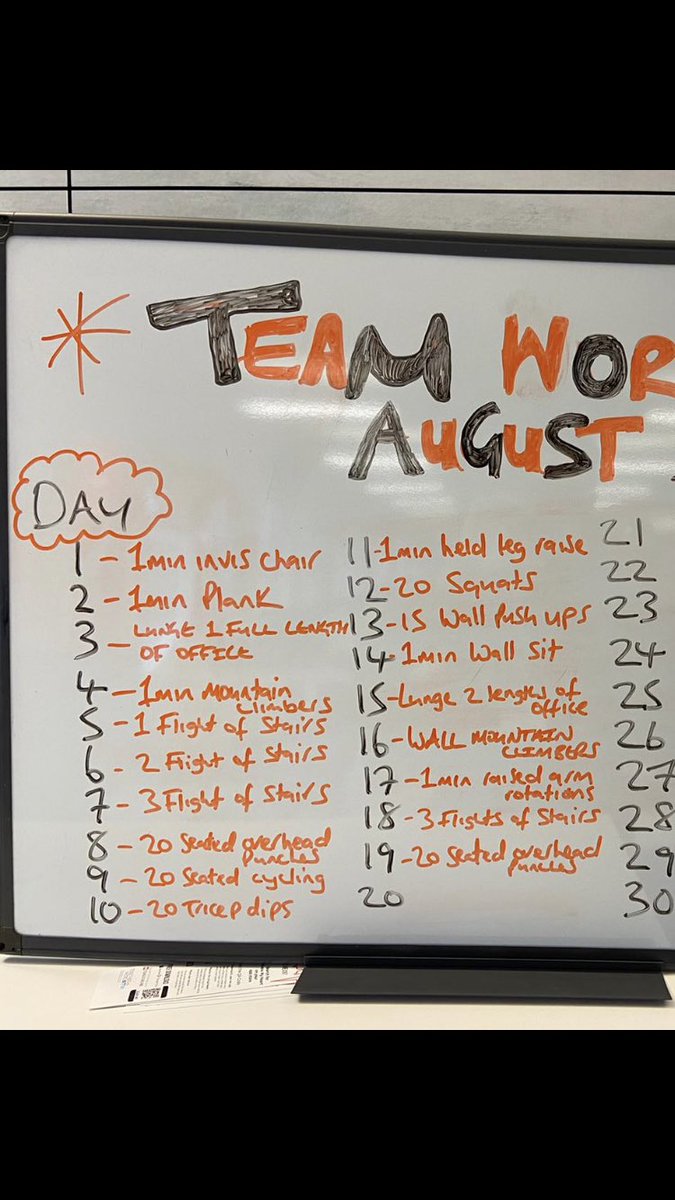 TEAM WOR
AUGUST
DAY
1 - 1min invis chair
2 - 1min Plank
3 - LUNGE 1 FULL LENGTH
OF OFFICE
4 - 1min Mountain
Climbers
5 - 1 Flight of Stairs
6 - 2 Flight of Stairs
7 - 3 Flight of Stairs
8 - 20 Seated overhead
Punches
9 - 20 Seated cycling
10 - 20 Tricep dips
11 - 1min held leg raise
12 - 20 Squats
13 - 15 Wall Push ups
14 - 1min Wall Sit
15 - Lunge 2 lengths of
office
16 - WALL MOUNTAIN
CLIMBERS
17 - 1min raised arm
rotations
18 - 3 Flights of Stairs
19 - 20 Seated overhead
Punches
20
21
22
23
24
25
26
27
28
29
30